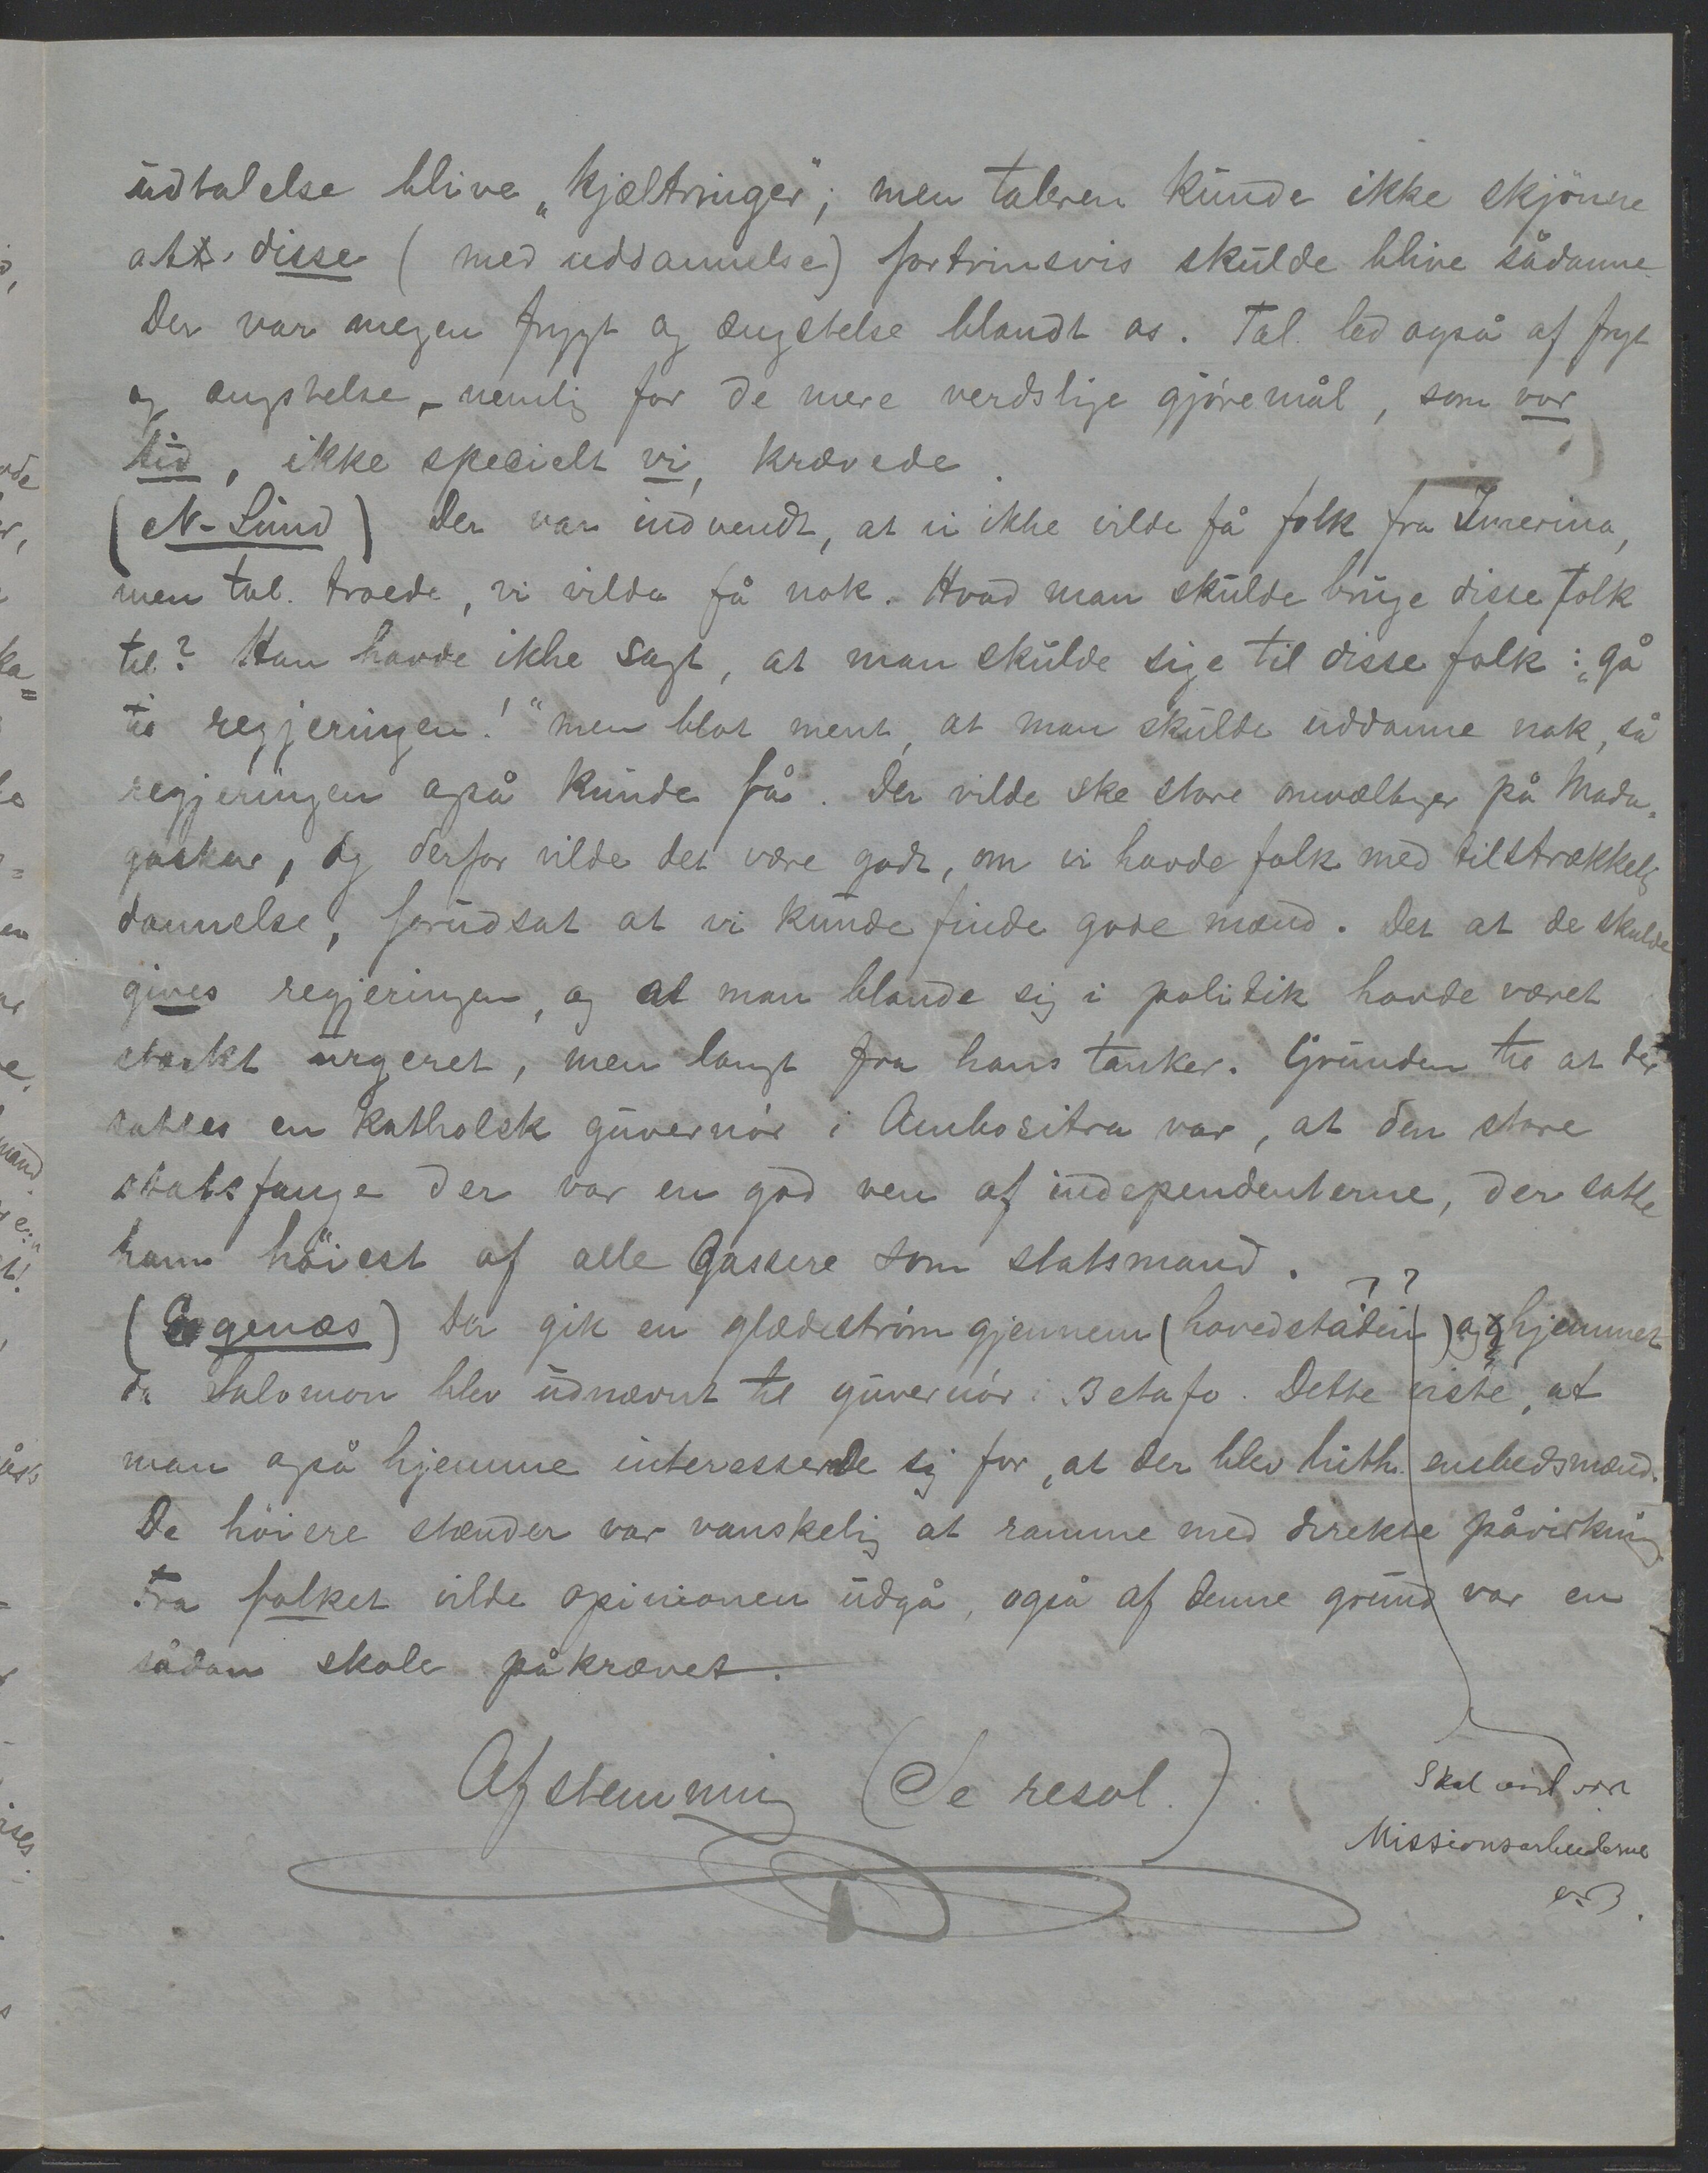 udtalelse blive „kjæltringer“; men taleren kunde ikke skjönne
at disse (med uddannelse) fortrinsvis skulde blive sådanne.
Der var megen frygt og ængstelse blandt os. Tal. led også af frygt
og ængstelse, nemlig for de mere verdslige gjöremål, som vor
tid, ikke specielt vi, krævede.
(N-Lund) Der var indvendt, at vi ikke vilde få folk fra Imerina,
men tal. troede, vi vilde få nok. Hvad man skulde bruge disse folk
til? Han havde ikke sagt, at man skulde sige til disse folk: „gå
til regjeringen!“ men blot ment, at man skulde uddanne nok, så
regjeringen også kunde få. Der vilde ske store omvæltnger på Mada-
gaskar, og derfor vilde det være godt, om vi havde folk med tilstrækkelig
dannelse, forudsat at vi kunde finde gode mænd. Det at de skulde
gives regjeringen, og at man blande sig i politik havde været
stærkt urgeret, men langt fra hans tanker. Grunden til at der
sattes en katholsk guvernör i Ambositra var, at den store
statsfange der var en god ven af independenterne, der satte
ham höiest af alle Gassere som statsmand.
(Engenæs) Der gik en glædeström gjennem (hovedstaden) og hjemmet
da Salomon blev udnævnt til guvernör i Betafo. Dette viste, at
man også hjemme interesserede sig for, at der blev luth. embedsmænd.
De höiere stænder var vanskelig at ramme med direkte påvirkning.
Fra folket vilde opinionen udgå, også af denne grund var en
sådan skole påkrævet.
Afstemning (Se resol.)
Skal
Missionsarbeiderne